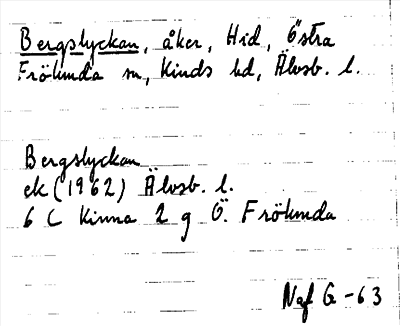 Bergslyckan, åker, Hid, Östra
Frölunda sn, Kinds hd, Älvsb. l.
Bergslyckan
ek (1962) Älvsb. l.
6 C Kinna 2 g Ö. Frölunda
Naf G-63